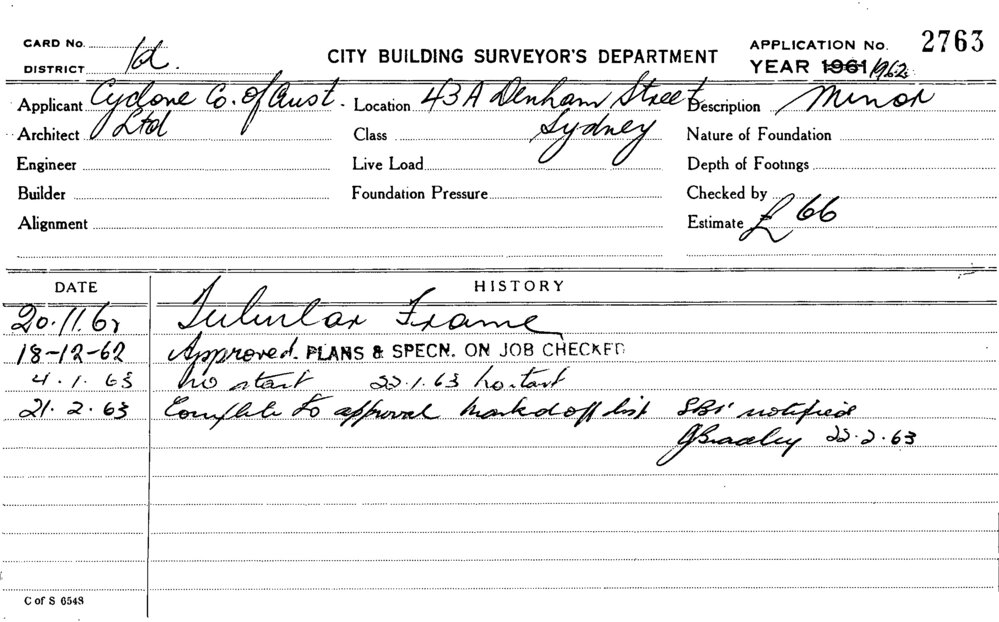 CARD No.
DISTRICT Id.
CITY BUILDING SURVEYOR'S DEPARTMENT
APPLICATION No. 2763
YEAR 1961 1962
Applicant Cyclone Co. of Aust. Location 43A Denham Street Description Minor
Architect Ltd Class Sydney Nature of Foundation
Engineer Live Load Depth of Footings
Builder Foundation Pressure Checked by
Alignment Estimate £66
DATE HISTORY
20.11.62 Tubular Frame
18-12-62 Approved. PLANS & SPECN. ON JOB CHECKED
4.1.63 no start 22.1.63 no start
21.2.63 Complete to approval markd off list SBI notified
22.2.63
C of S 6548